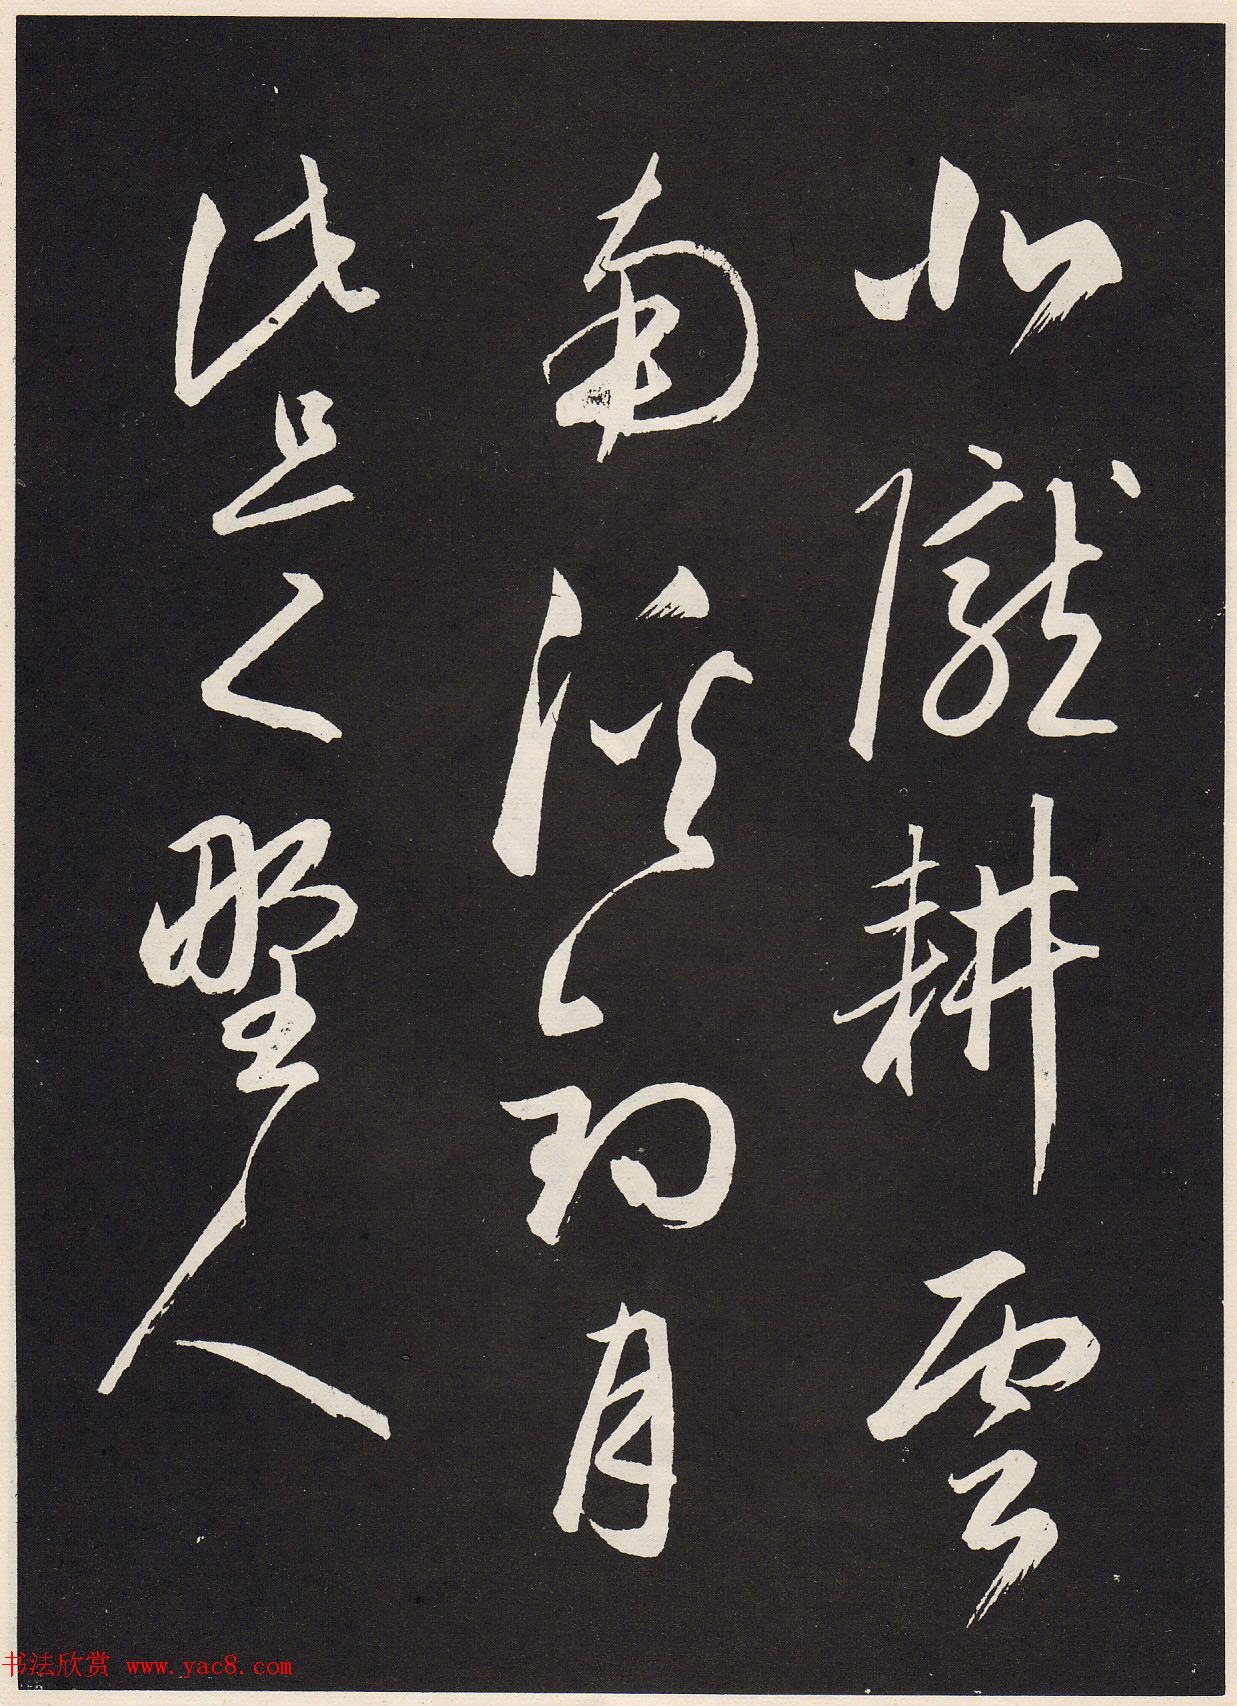 北隴耕雲
南溪釣月
此是野人
书法欣赏 www.yac8.com